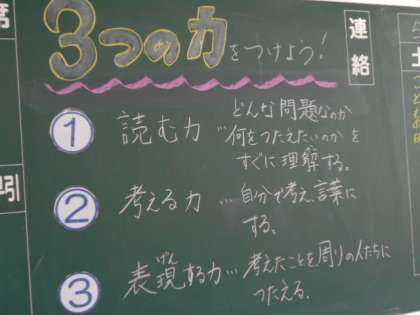 席
早引
3つの力をつけよう!
連絡
① 読む力 … どんな問題なのか
何をつたえたいのかを
すぐに理解する。
② 考える力 … 自分で考え、言葉に
する。
げん
③ 表現する力 … 考えたことを周りの人たちに
つたえる。